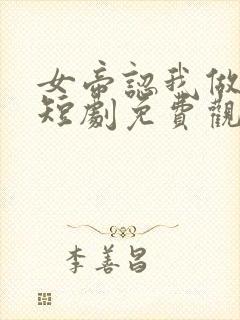 女帝認我做
短劇免費觀
李善昌